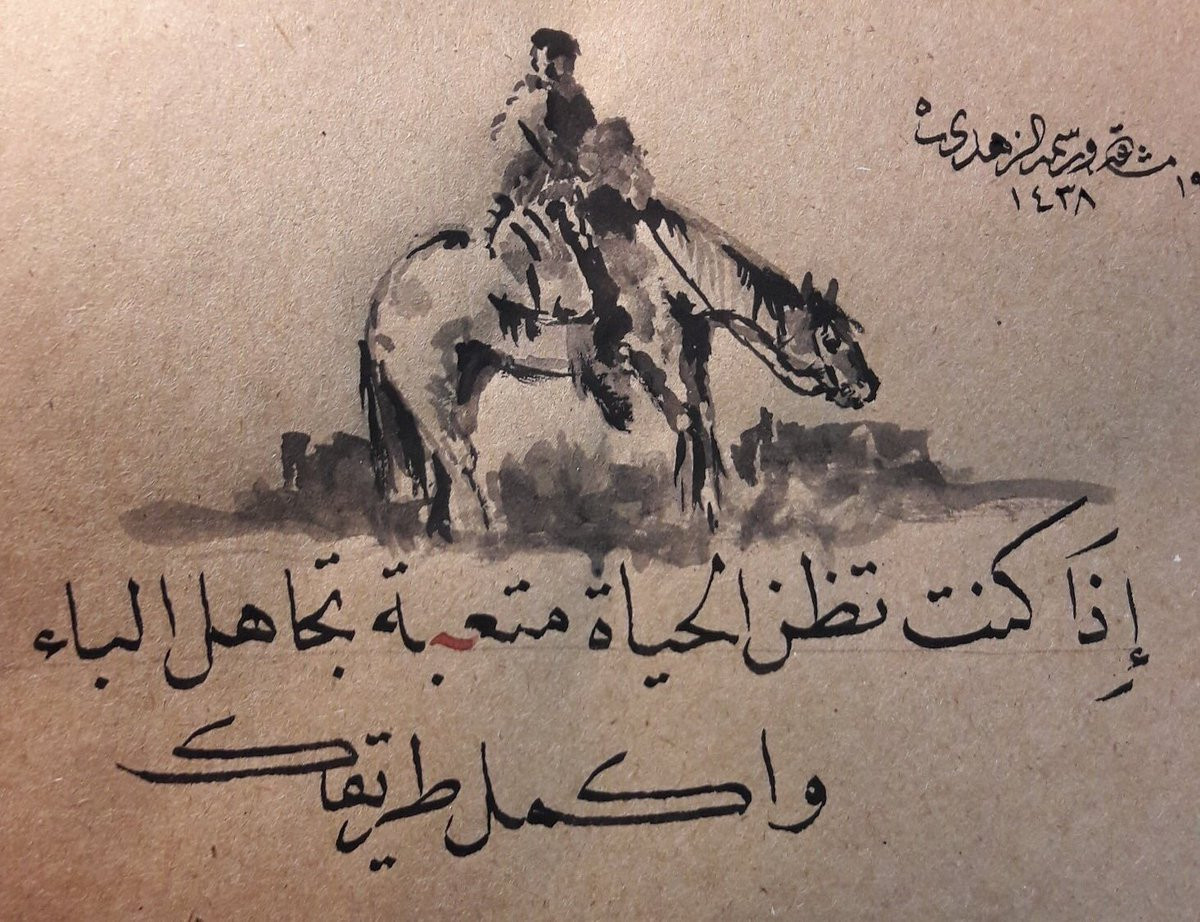 مشقه ورسمه الزهدي
١٤٣٨
إذا كنت تظن الحياة متعبة تجاهل الباء
واكمل طريقك